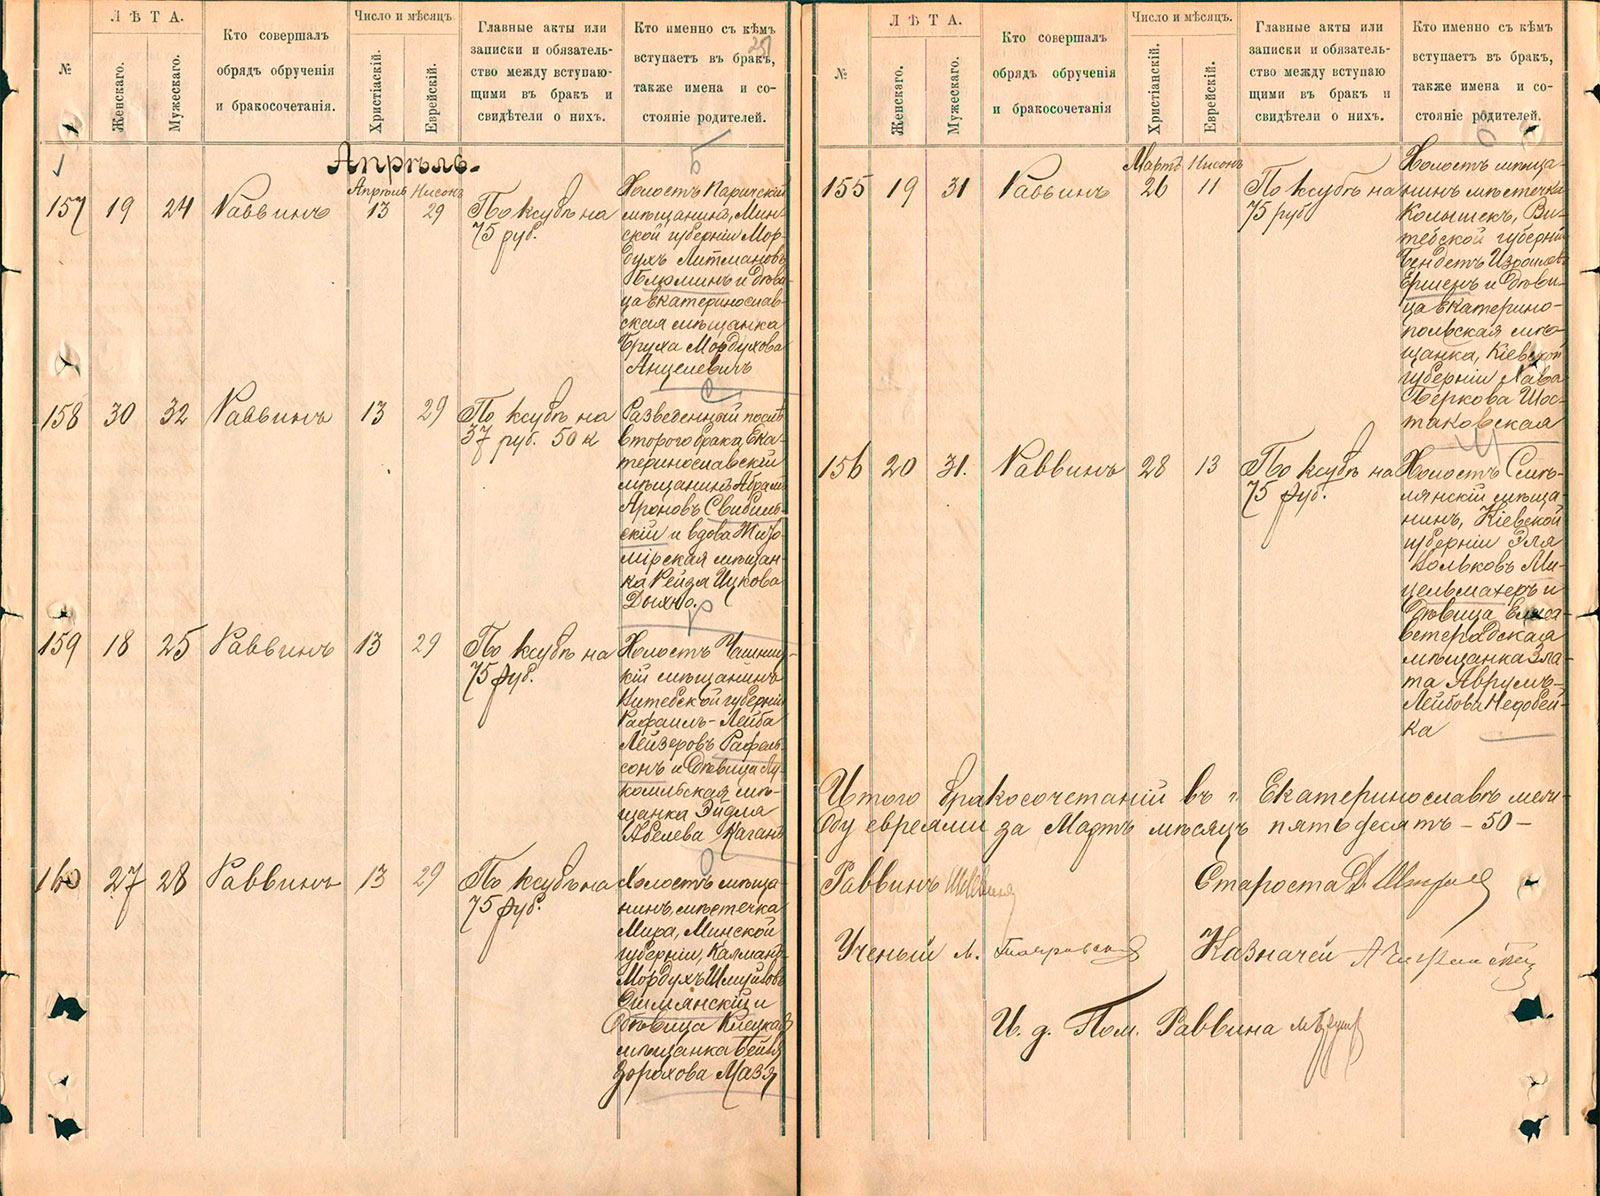 ЛѢТА.
Число и мѣсяцъ.
№
Женскаго.
Мужескаго.
Кто совершалъ
обрядъ обрученія
и бракосочетанія.
Христіанскій.
Еврейскій.
Главные акты или
записки и обязатель-
ство между вступаю-
щими въ бракъ и
свидѣтели о нихъ.
Кто именно съ кѣмъ
вступаетъ въ бракъ,
также имена и со-
стояніе родителей.
251
Апрѣль.
Б
157 19 24 Раввинъ
Апрѣль Нисонъ
13 29
По ксубѣ на
75 руб.
Холостъ Паричскій
мѣщанинъ, Мин-
ской губерніи Мор-
духъ Литмановъ
Блюминъ и дѣви-
ца екатеринослав-
ская мѣщанка
Бруха Мордухова
Анцелевичъ
С
158 30 32 Раввинъ 13 29
По ксубѣ на
37 руб. 50 к
Разведенный послѣ
второго брака, Ека-
теринославскій
мѣщанинъ Абрамъ
Ароновъ Свибиль-
скій и вдова Жито-
мірская мѣщан-
ка Рейзя Ицкова
Дыхно.
Р
159 18 25 Раввинъ 13 29
По ксубѣ на
75 руб.
Холостъ Чашниц-
кій мѣщанинъ
Витебской губерніи
Рафаилъ-Лейба
Лейзеровъ Рафаль-
сонъ и дѣвица Лу-
комльская мѣ-
щанка Эйдля
Абелева Каганъ
О
160 27 28 Раввинъ 13 29
По ксубѣ на
75 руб.
Холостъ мѣща-
нинъ, мѣстечка
Мира, Минской
губерніи, Калманъ-
Мордухъ Шмуйловъ
Ошмянскій и
дѣвица Клецкая
мѣщанка Бейля
Зорохова Мазя
ЛѢТА.
Число и мѣсяцъ.
№
Женскаго.
Мужескаго.
Кто совершалъ
обрядъ обрученія
и бракосочетанія
Христіанскій.
Еврейскій.
Главные акты или
записки и обязатель-
ство между вступаю
щими въ бракъ и
свидѣтели о нихъ.
Кто именно съ кѣмъ
вступаетъ въ бракъ,
также имена и со-
стояніе родителей.
155 19 31 Раввинъ
Мартъ Нисонъ
26 11
По ксубѣ на
75 руб
Холостъ мѣща-
нинъ мѣстечка
Колышекъ, Ви-
тебской губерніи
Бендетъ Изроилевъ
Ершенъ и дѣви-
ца екатерино-
польская мѣ-
щанка, Кіевской
губерніи Хава
Беркова Шос-
таковская
156 20 31. Раввинъ 28 13
По ксубѣ на
75 руб.
Холостъ Смѣ-
лянскій мѣща-
нинъ, Кіевской
губерніи Эля
Вольковъ Ми-
цельмахеръ и
дѣвица Елиса-
ветградская
мѣщанка Зла-
та Аврумъ-
Лейбова Недобей-
ка
Итого бракосочетаній въ г. Екатеринославѣ меж-
ду евреями за Мартъ мѣсяцъ пятьдесятъ – 50 –
Раввинъ
Староста
Ученый
Казначей
И. д. Пом. Раввина